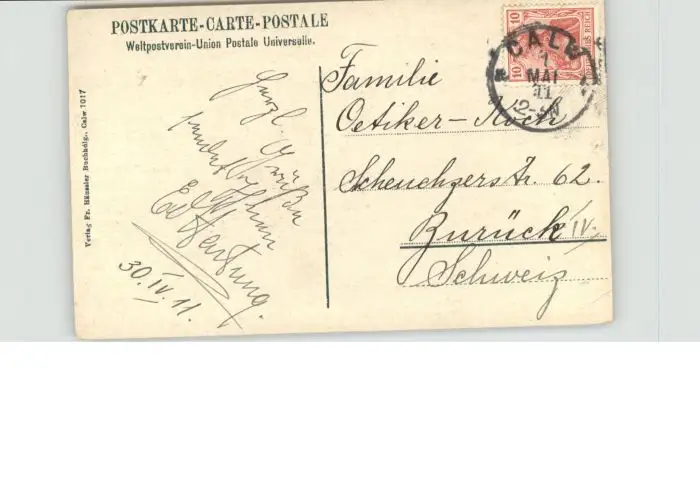 POSTKARTE-CARTE-POSTALE
Weltpostverein-Union Postale Universelle.
Verlag Fr. Häussler Buchhdlg., Calw 1017
Herzl. Grüße
sendet Ihnen
30.IV.11.
10 10
REICH
CALW
1
MAI
11
12-
Familie
Oetiker-Koch
Scheuchzerstr. 62.
Zürich IV.
Schweiz